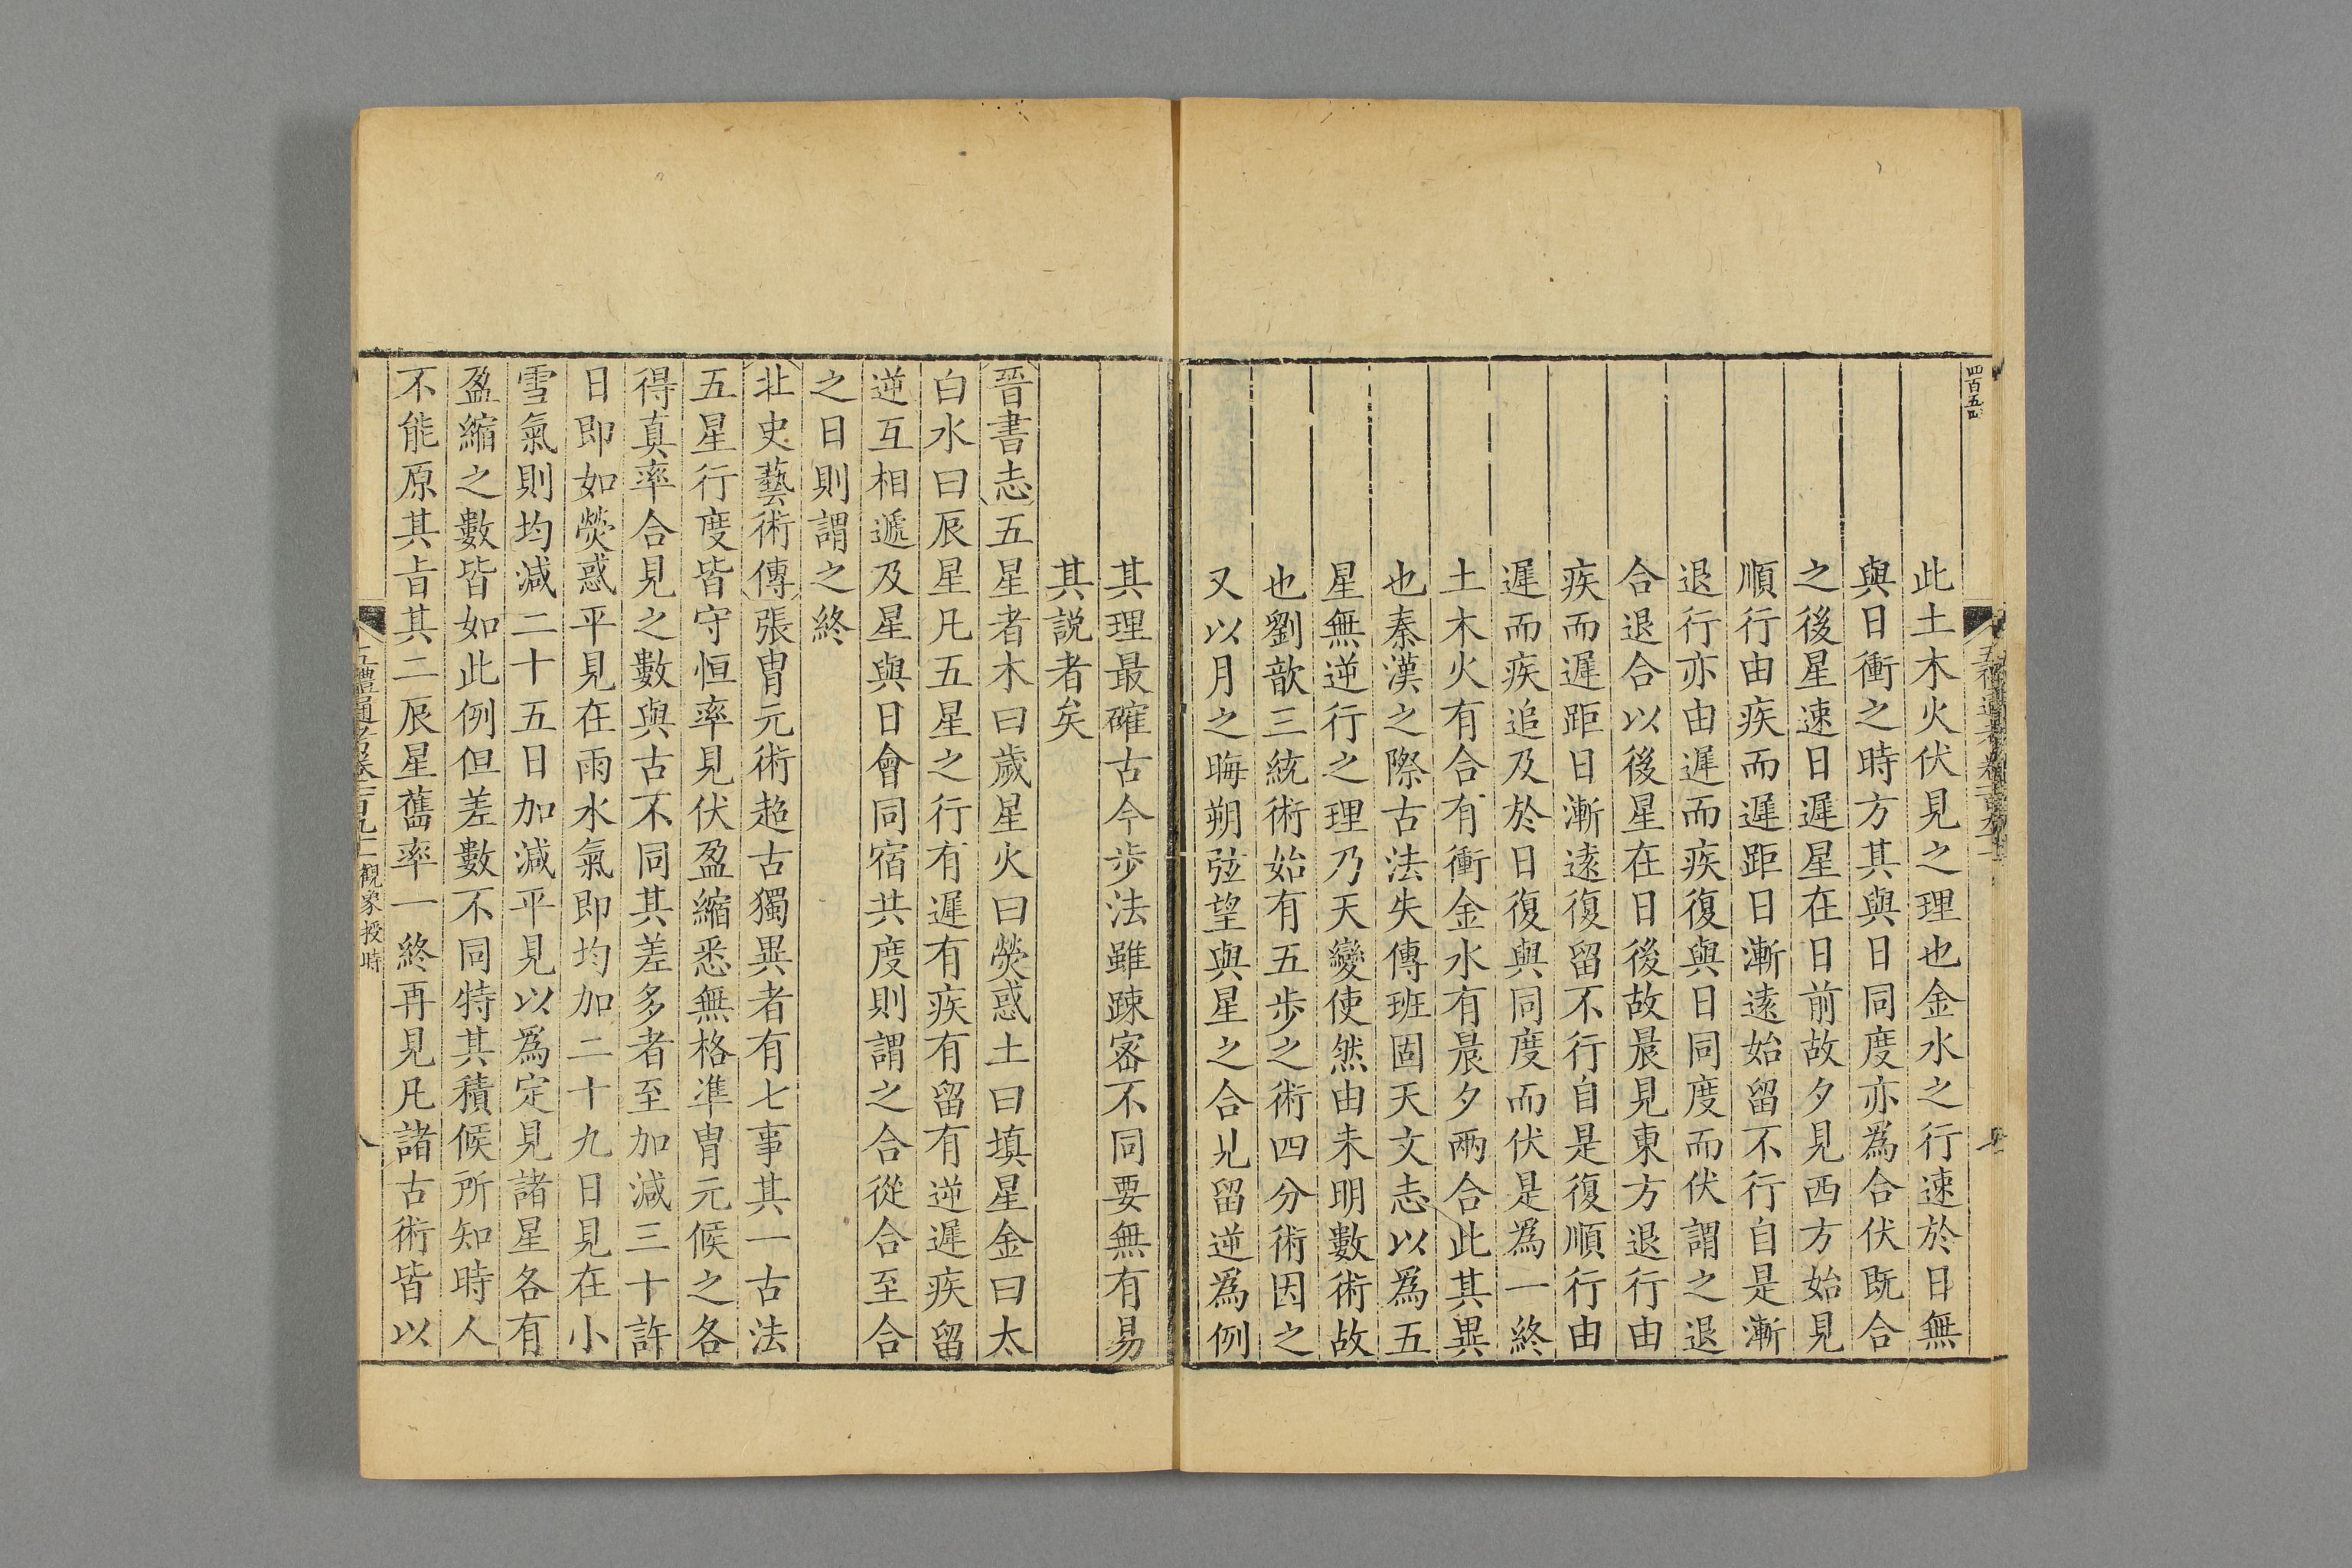 四百五四
此土木火伏見之理也金水之行速於日無
與日衝之時方其與日同度亦爲合伏既合
之後星速日遲星在日前故夕見西方始見
順行由疾而遲距日漸遠始留不行自是漸
退行亦由遲而疾復與日同度而伏謂之退
合退合以後星在日後故晨見東方退行由
疾而遲距日漸遠復留不行自是復順行由
遲而疾追及於日復與同度而伏是爲一終
土木火有合有衝金水有晨夕兩合此其異
也秦漢之際古法失傳班固天文志以爲五
星無逆行之理乃天變使然由未明數術故
也劉歆三統術始有五步之術四分術因之
又以月之晦朔弦望與星之合見留逆爲例
其理最確古今步法雖疎密不同要無有易
其説者矣
晉書志五星者木曰歲星火曰熒惑土曰填星金曰太
白水曰辰星凡五星之行有遲有疾有留有逆遲疾留
逆互相遞及星與日會同宿共度則謂之合從合至合
之日則謂之終
北史藝術傳張胄元術超古獨異者有七事其一古法
五星行度皆守恒率見伏盈縮悉無格準胄元候之各
得真率合見之數與古不同其差多者至加減三十許
日即如熒惑平見在雨水氣即均加二十九日見在小
雪氣則均減二十五日加減平見以爲定見諸星各有
盈縮之數皆如此例但差數不同特其積候所知時人
不能原其旨其二辰星舊率一終再見凡諸古術皆以
五禮通考卷一百九十二 觀象授時 八